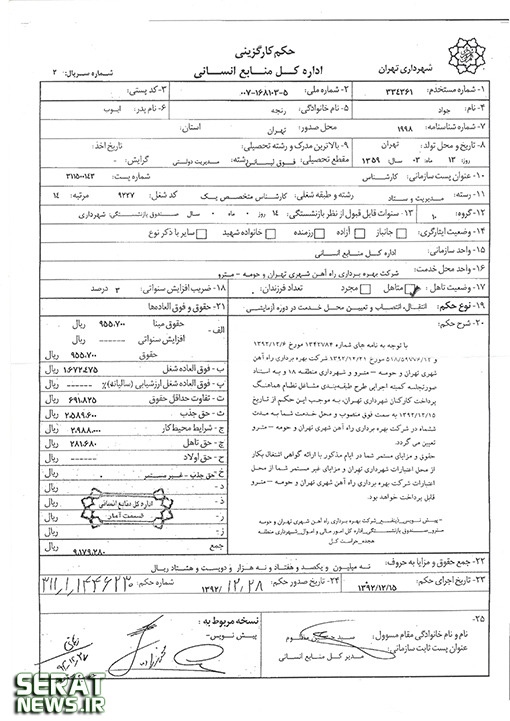 حکم کارگزینی
شهرداری تهران
اداره کل منابع انسانی
شماره سریال: ۲
۱- شماره مستخدم: ۳۳۴۳۶۱
۲- شماره ملی: ۵-۰۰۷-۱۶۸۱۰۳
۳- کد پستی:
۴- نام: جواد
۵- نام خانوادگی: رنجه
۶- نام پدر: ایوب
۷- شماره شناسنامه: ۱۹۹۸
محل صدور: تهران
استان:
۸- تاریخ و محل تولد: تهران
روز: ۱۳ ماه ۰۳ سال ۱۳۵۹
۹- بالاترین مدرک و رشته تحصیلی:
تاریخ اخذ:
مقطع تحصیلی: فوق لیسانس رشته: مدیریت دولتی
گرایش: -
۱۰- عنوان پست سازمانی: کارشناس
شماره پست: ۳۱۱۵۰۰۱۴۳
۱۱- رسته: مدیریت و ستاد
رشته و طبقه شغلی: کارشناس متخصص یک
کد شغل: ۹۲۲۷ مرتبه: ۱۴
۱۲- گروه: ۱۰
۱۳- سنوات قابل قبول از نظر بازنشستگی: ۱۴ روز ۰ ماه ۰ سال
صندوق بازنشستگی: شهرداری
۱۴- وضعیت ایثارگری: جانباز آزاده رزمنده خانواده شهید سایر با ذکر نوع
۱۵- واحد سازمانی: اداره کل منابع انسانی
۱۶- واحد محل خدمت: شرکت بهره برداری راه آهن شهری تهران و حومه - مترو
۱۷- وضعیت تاهل: متاهل مجرد تعداد فرزندان:
۱۸- ضریب افزایش سنواتی: ۳ درصد
۱۹- نوع حکم: انتقال، انتصاب و تعیین محل خدمت در دوره آزمایشی
۲۰- شرح حکم:
با توجه به نامه های شماره ۱۳۴۲۷۸۴ مورخ ۱۳۹۲/۱۲/۶
و ۵۱۸/۵۹۷۷۶/۱۲ مورخ ۱۳۹۲/۱۲/۲۱ شرکت بهره برداری راه آهن
شهری تهران و حومه - مترو و شهرداری منطقه ۱۸ و به استناد
صورتجلسه کمیته اجرایی طرح طبقه‌بندی مشاغل نظام هماهنگ
پرداخت کارکنان شهرداری تهران، به موجب این حکم از تاریخ
۱۳۹۲/۱۲/۱۵ به سمت فوق منصوب و محل خدمت شما به مدت
ششماه در شرکت بهره برداری راه آهن شهری تهران و حومه - مترو
تعیین می گردد.
حقوق و مزایای مستمر شما در ایام مذکور با ارائه گواهی اشتغال بکار
از محل اعتبارات شهرداری تهران و مزایای غیر مستمر شما از محل
اعتبارات شرکت بهره برداری راه آهن شهری تهران و حومه - مترو
قابل پرداخت خواهد بود.
شرکت بهره برداری راه آهن شهری تهران و حومه
مترو
صندوق بازنشستگی شهرداری تهران اداره کل امور مالی و اموال
شهرداری منطقه
هجده حراست کل
۲۱- حقوق و فوق العاده‌ها
الف- حقوق مبنا ۹۵۵.۷۰۰ ریال
افزایش سنواتی ------ ریال
حقوق ۹۵۵.۷۰۰ ریال
ب- فوق العاده شغل ۱.۶۷۲.۴۷۵ ریال
پ- فوق العاده شغل ارزشیابی (سالیانه)٪ ------ ریال
ت- تفاوت حداقل حقوق ۶۹۱.۸۲۵ ریال
ث- حق جذب ۲.۵۸۹.۶۰۰ ریال
ج- شرایط محیط کار ۲.۹۸۸.۰۰۰ ریال
چ- حق تاهل ۲۸۱.۶۸۰ ریال
ح- حق اولاد ------ ریال
خ- حق جذب - غیر مستمر ۰ ریال
د- ریال
ذ- ریال
ر- ریال
ز- ریال
اداره کل منابع انسانی
قسمت آمار
جمع ۹.۱۷۹.۲۸۰ ریال
۲۲- جمع حقوق و مزایا به حروف: نه میلیون و یکصد و هفتاد و نه هزار و دویست و هشتاد ریال
۲۳- تاریخ اجرای حکم: ۱۳۹۲/۱۲/۱۵
۲۴- تاریخ صدور حکم: ۱۳۹۲/۱۲/۲۸
شماره حکم:
۲۵-
نام و نام خانوادگی مقام مسوول: سید حسین مظلوم
عنوان پست ثابت سازمانی: مدیر کل منابع انسانی
نسخه مربوط به:
پیش نویس-
SERAT
NEWS.IR